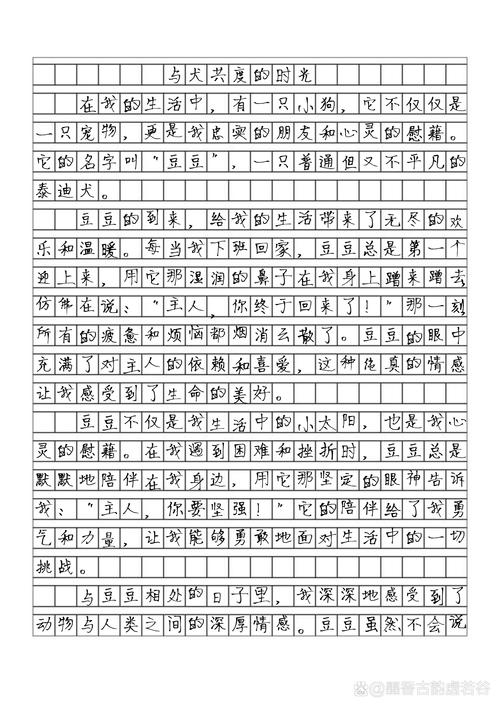 与犬共度的时光
在我的生活中，有一只小狗，它不仅仅是
一只宠物，更是我忠实的朋友和心灵的慰藉。
它的名字叫“豆豆”，一只普通但又不平凡的
泰迪犬。
豆豆的到来，给我的生活带来了无尽的欢
乐和温暖。每当我下班回家，豆豆总是第一个
迎上来，用它那湿润的鼻子在我身上蹭来蹭去
仿佛在说：“主人，你终于回来了！”那一刻
所有的疲惫和烦恼都烟消云散了。豆豆的眼中
充满了对主人的依赖和喜爱，这种纯真的情感
让我感受到了生命的美好。
豆豆不仅是我生活中的小太阳，也是我心
灵的慰藉。在我遇到困难和挫折时，豆豆总是
默默地陪伴在我身边，用它那坚定的眼神告诉
我：“主人，你要坚强！”它的陪伴给了我勇
气和力量，让我能够勇敢地面对生活中的一切
挑战。
与豆豆相处的日子里，我深深地感受到了
动物与人类之间的深厚情感。豆豆虽然不会说